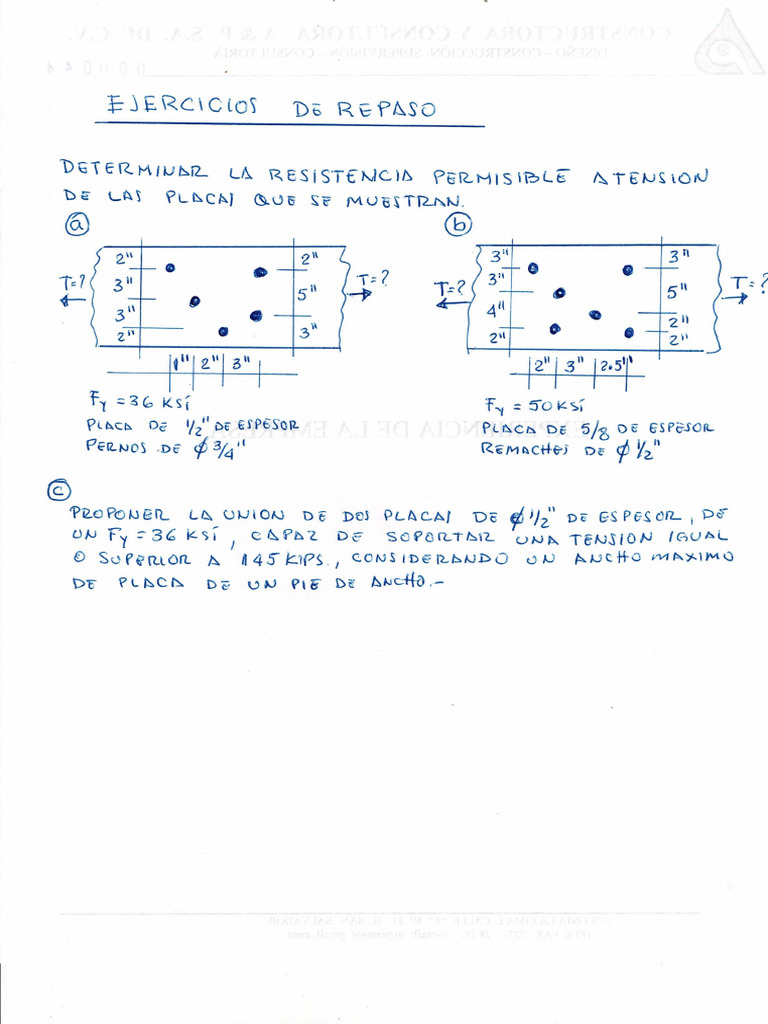 EJERCICIOS DE REPASO
DETERMINAR LA RESISTENCIA PERMISIBLE A TENSION
DE LAS PLACAS QUE SE MUESTRAN.
ⓐ
2" 2"
T=? 3" T=?
5"
3"
2" 3"
1" 2" 3"
Fy = 36 KSí
PLACA DE 1/2" DE ESPESOR
PERNOS DE ϕ 3/4"
ⓑ
3" 3"
T=? 3" T=?
5"
4"
2"
2" 2"
2" 3" 2.5"
Fy = 50 KSí
PLACA DE 5/8 DE ESPESOR
REMACHES DE ϕ 1/2"
ⓒ
PROPONER LA UNION DE DOS PLACAS DE ϕ 1/2" DE ESPESOR, DE
UN Fy = 36 KSí, CAPAZ DE SOPORTAR UNA TENSION IGUAL
O SUPERIOR A 145 KIPS., CONSIDERANDO UN ANCHO MAXIMO
DE PLACA DE UN PIE DE ANCHO.-